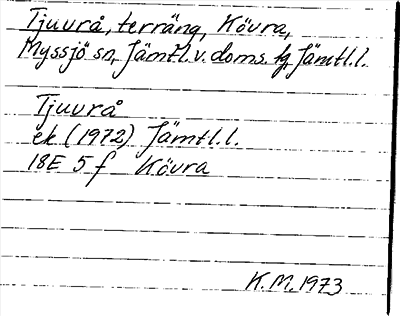 Tjuurå, terräng, Kövra,
Myssjö sn, Jämtl. v. doms. tg, Jämtl. l.
Tjuurå
ek (1972) Jämtl. l.
18E 5 f Kövra
K. M. 1973